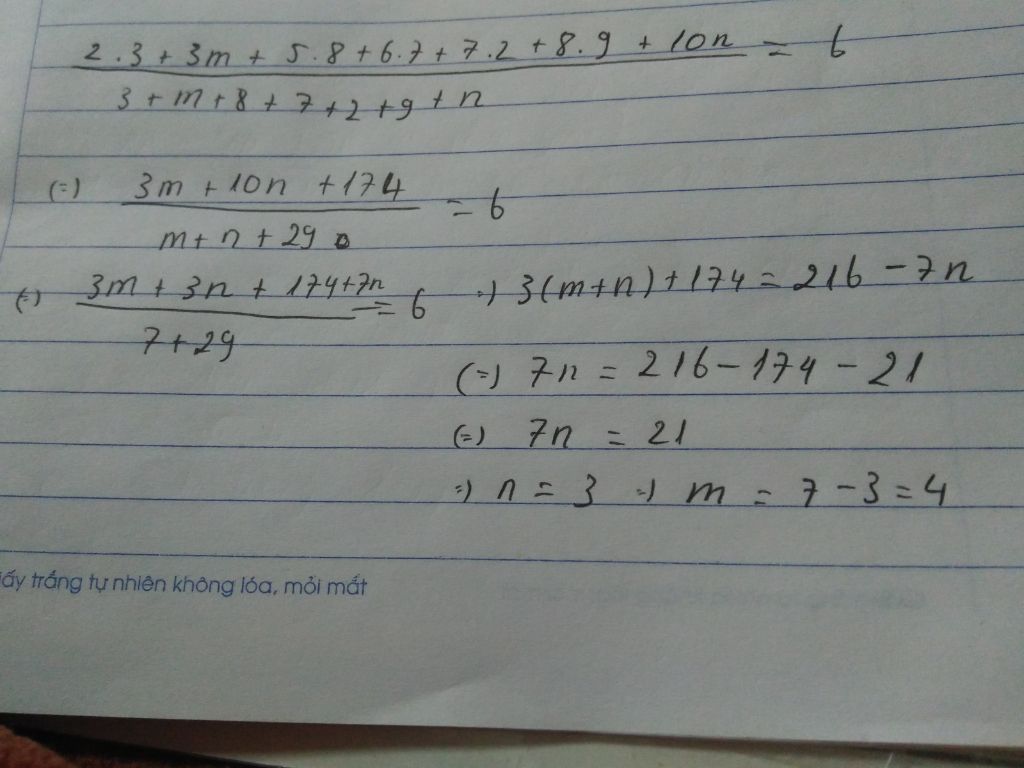 2.3 + 3m + 5.8 + 6.7 + 7.2 + 8.9 + 10n = 6
3 + m + 8 + 7 + 2 + 9 + n
(=) 3m + 10n + 174 = 6
m + n + 29
(=) 3m + 3n + 174 + 7n = 6 =) 3(m+n) + 174 = 216 - 7n
7 + 29
(=) 7n = 216 - 174 - 21
(=) 7n = 21
=) n = 3 =) m = 7 - 3 = 4
iấy trắng tự nhiên không lóa, mỏi mắt